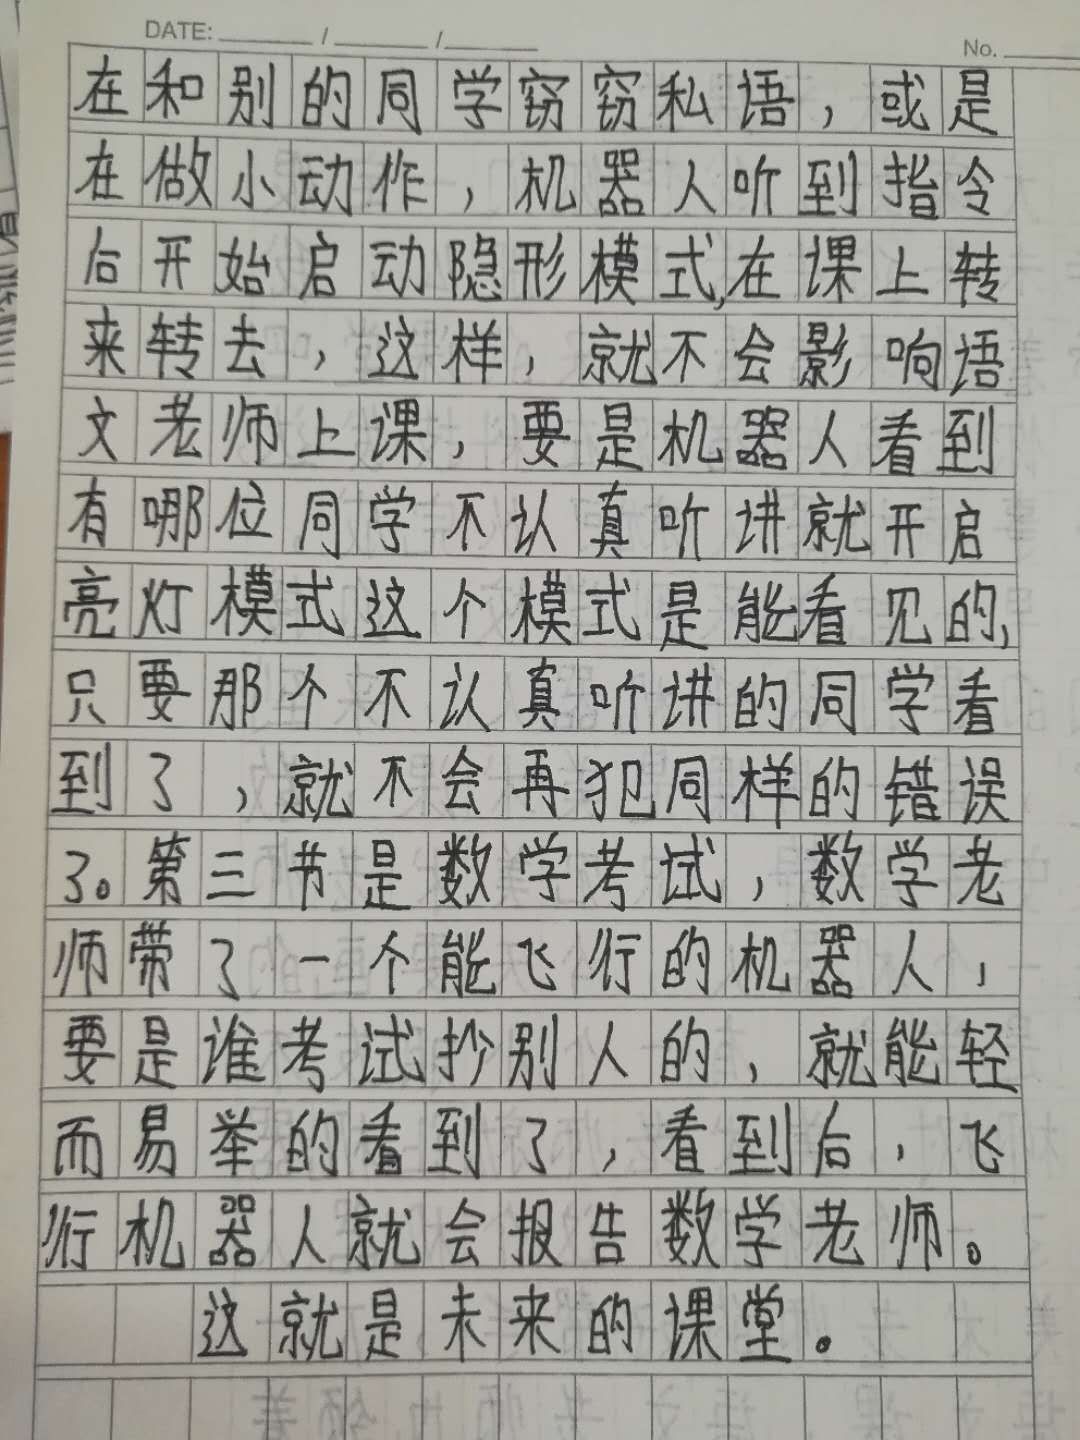 DATE: ______ / ______ / ______
No. ______
在和别的同学窃窃私语，或是
在做小动作，机器人听到指令
后开始启动隐形模式,在课上转
来转去，这样，就不会影响语
文老师上课，要是机器人看到
有哪位同学不认真听讲就开启
亮灯模式这个模式是能看见的,
只要那个不认真听讲的同学看
到了，就不会再犯同样的错误
了。第三节是数学考试，数学老
师带了一个能飞行的机器人，
要是谁考试抄别人的，就能轻
而易举的看到了，看到后，飞
行机器人就会报告数学老师。
这就是未来的课堂。